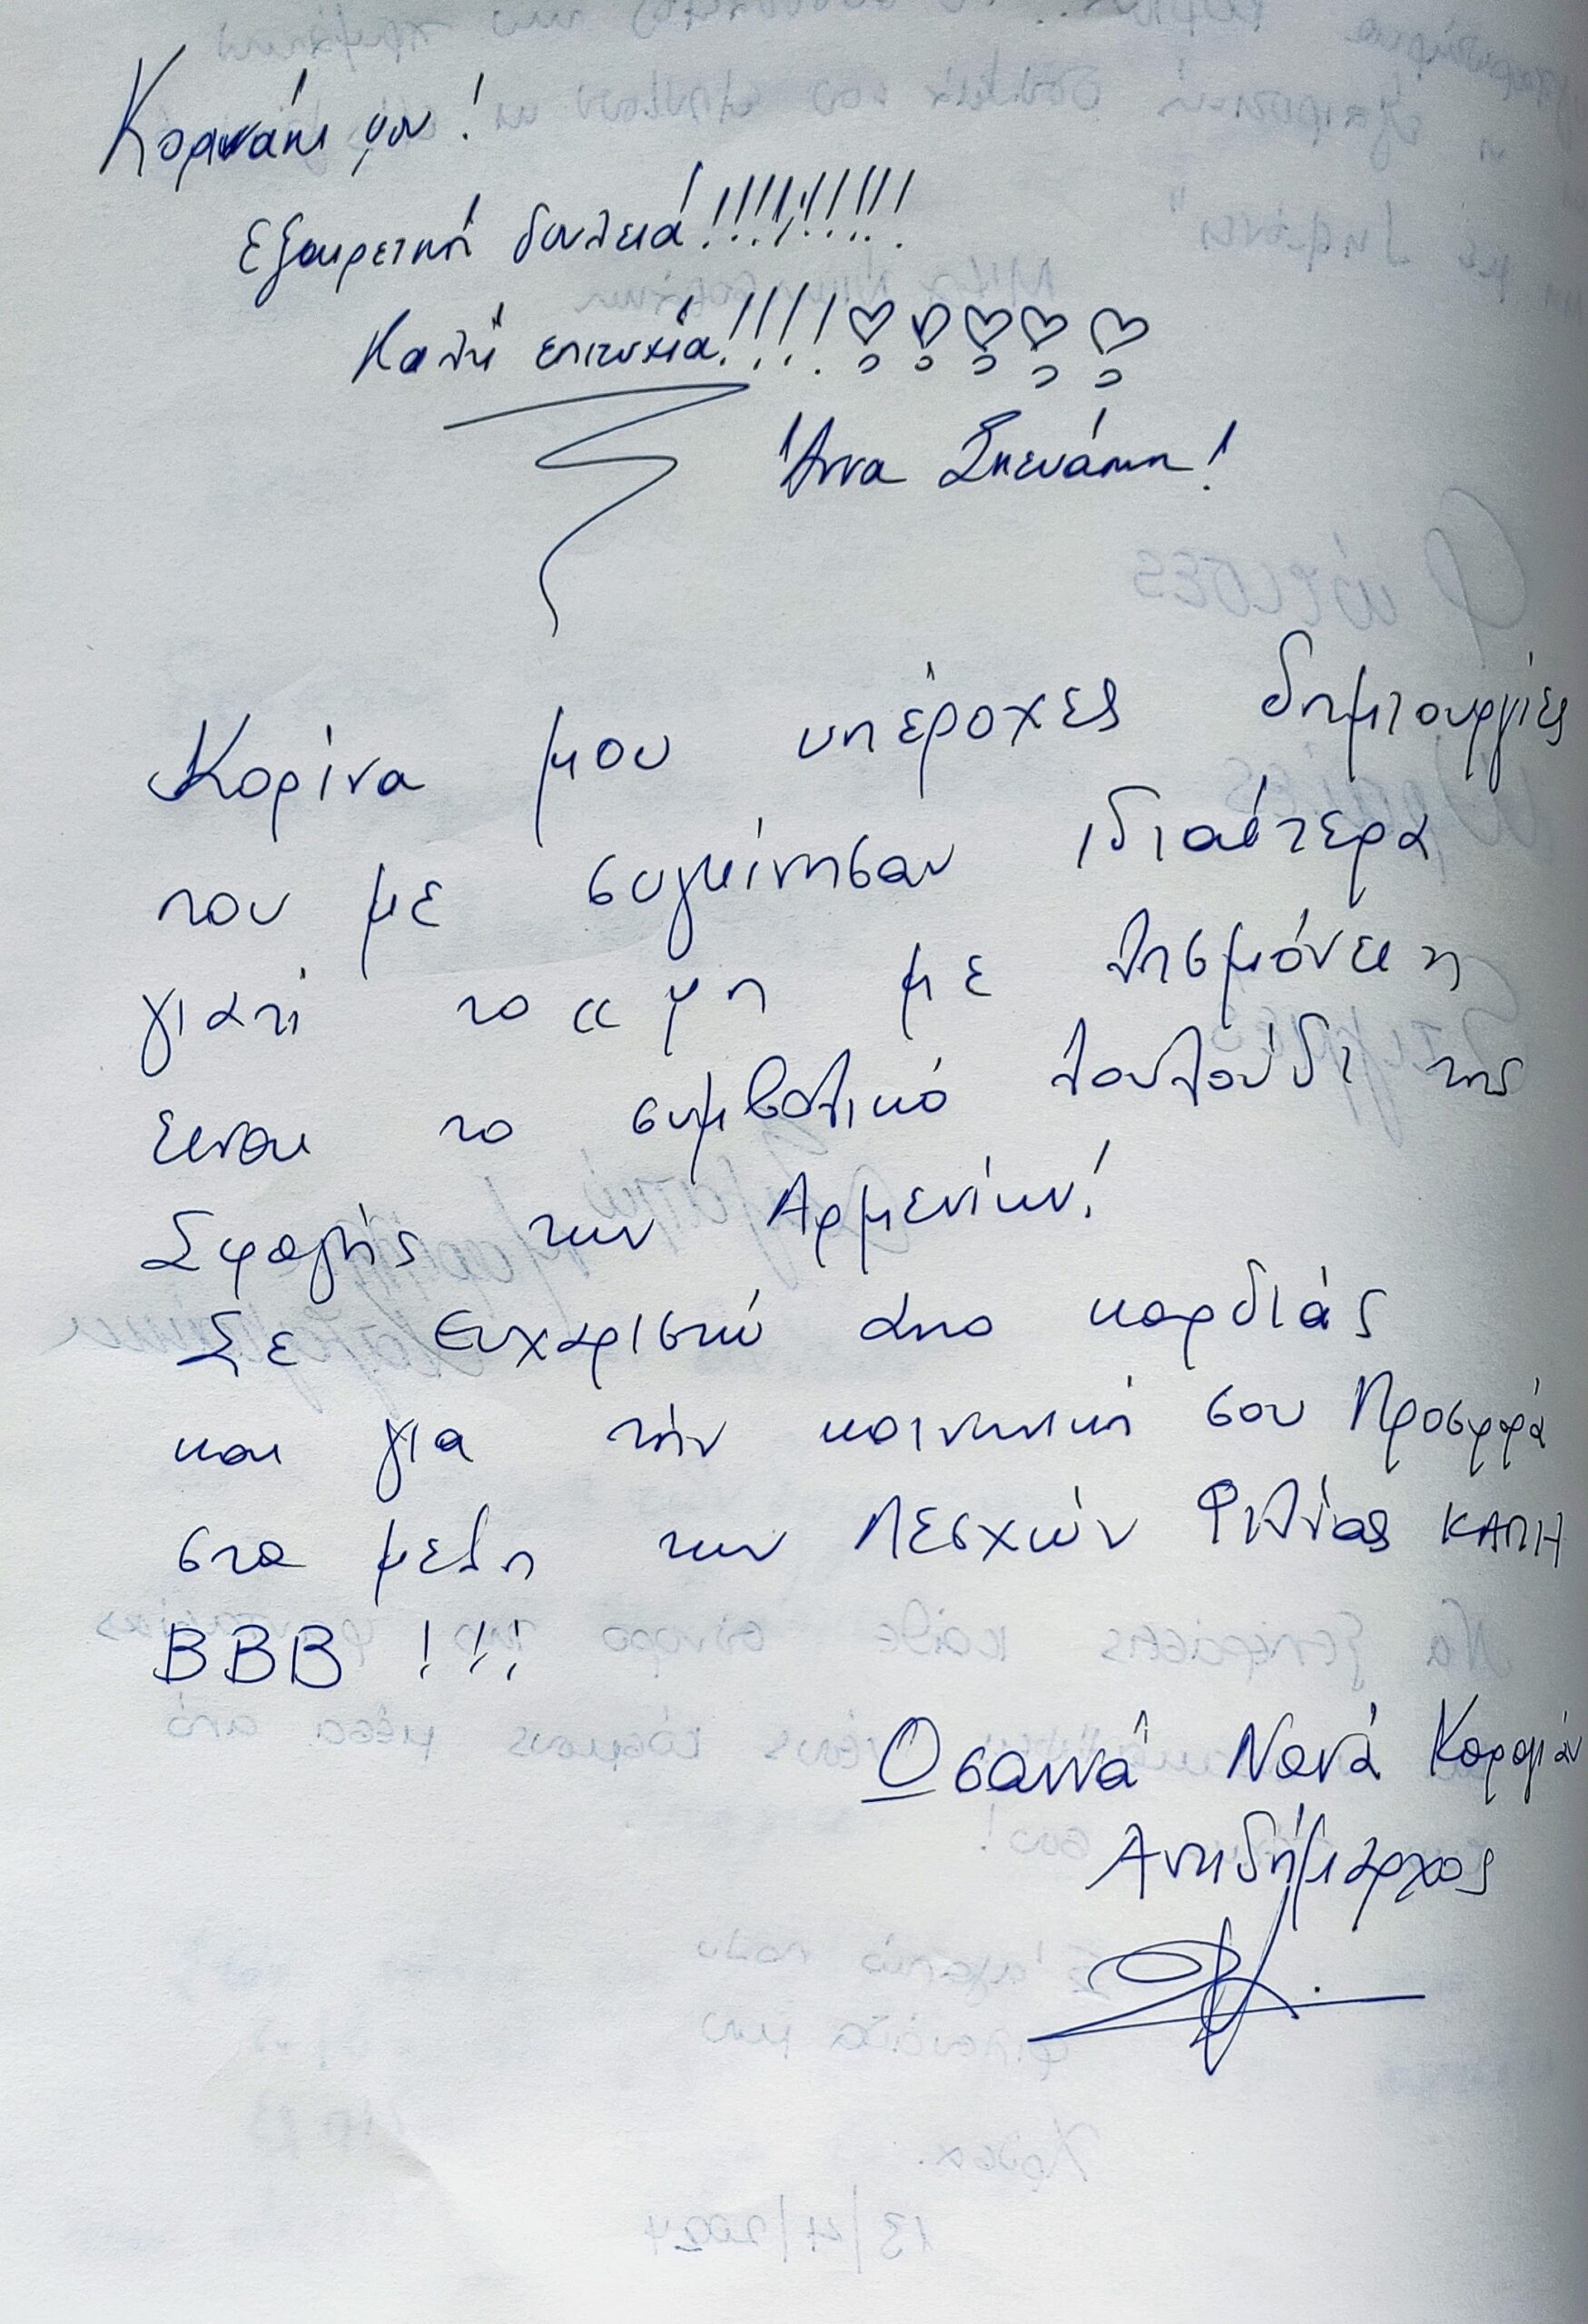 Κοριννάκι μου!
Εξαιρετική δουλειά!!!!!!!!!!
Καλή επιτυχία!!!!!
Άννα Σκευάκη!
Κορίνα μου υπέροχες δημιουργίες
που με συγκίνησαν ιδιαίτερα
γιατί το «μη με λησμόνει»
ειναι το συμβολικό λουλούδι της
Σφαγής των Αρμενίων!
Σε ευχαριστώ απο καρδιάς
και για τήν κοινωνική σου Προσφρά
στα μελη των Λεσχών Φιλίας ΚΑΠΗ
ΒΒΒ !!!
Οσαννά Νανά Καραγιάν
Αντιδήμαρχος